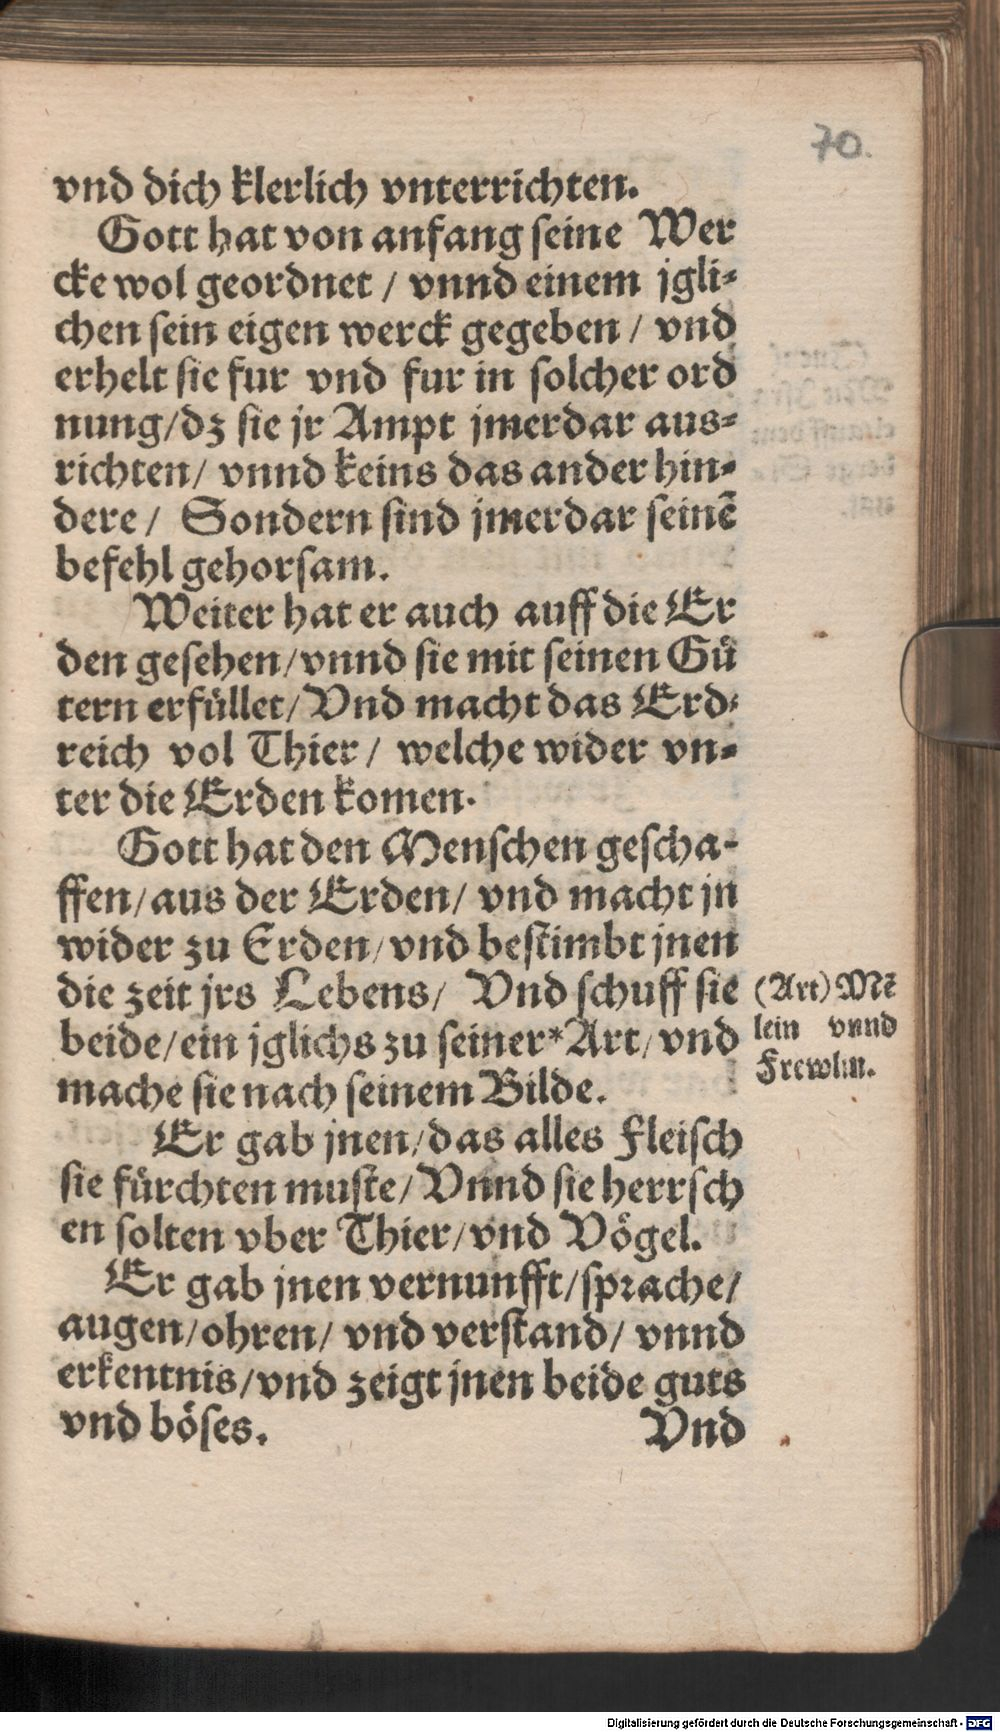 70.
vnd dich klerlich vnterrichten.
Gott hat von anfang seine Wer
cke wol geordnet / vnnd einem jgli⸗
chen sein eigen werck gegeben / vnd
erhelt sie fur vnd fur in solcher ord
nung/dz sie jr Ampt jmerdar aus⸗
richten/ vnnd keins das ander hin⸗
dere / Sondern sind jmerdar seinē
befehl gehorsam.
Weiter hat er auch auff die Er
den gesehen/vnnd sie mit seinen Gü
tern erfüllet/ Vnd macht das Erd⸗
reich vol Thier / welche wider vn⸗
ter die Erden komen.
Gott hat den Menschen gescha-
ffen/aus der Erden/ vnd macht jn
wider zu Erden/vnd bestimbt jnen
die zeit jrs Lebens/ Vnd schuff sie
beide/ein jglichs zu seiner*Art/vnd
mache sie nach seinem Bilde.
(Art) Mē
lein vnnd
Frewlin.
Er gab jnen/das alles Fleisch
sie fürchten muste/ Vnnd sie herrsch
en solten vber Thier/vnd Vögel.
Er gab jnen vernunfft/sprache/
augen/ohren/ vnd verstand/ vnnd
erkentnis/vnd zeigt jnen beide guts
vnd böses. Vnd
Digitalisierung gefördert durch die Deutsche Forschungsgemeinschaft - DFG